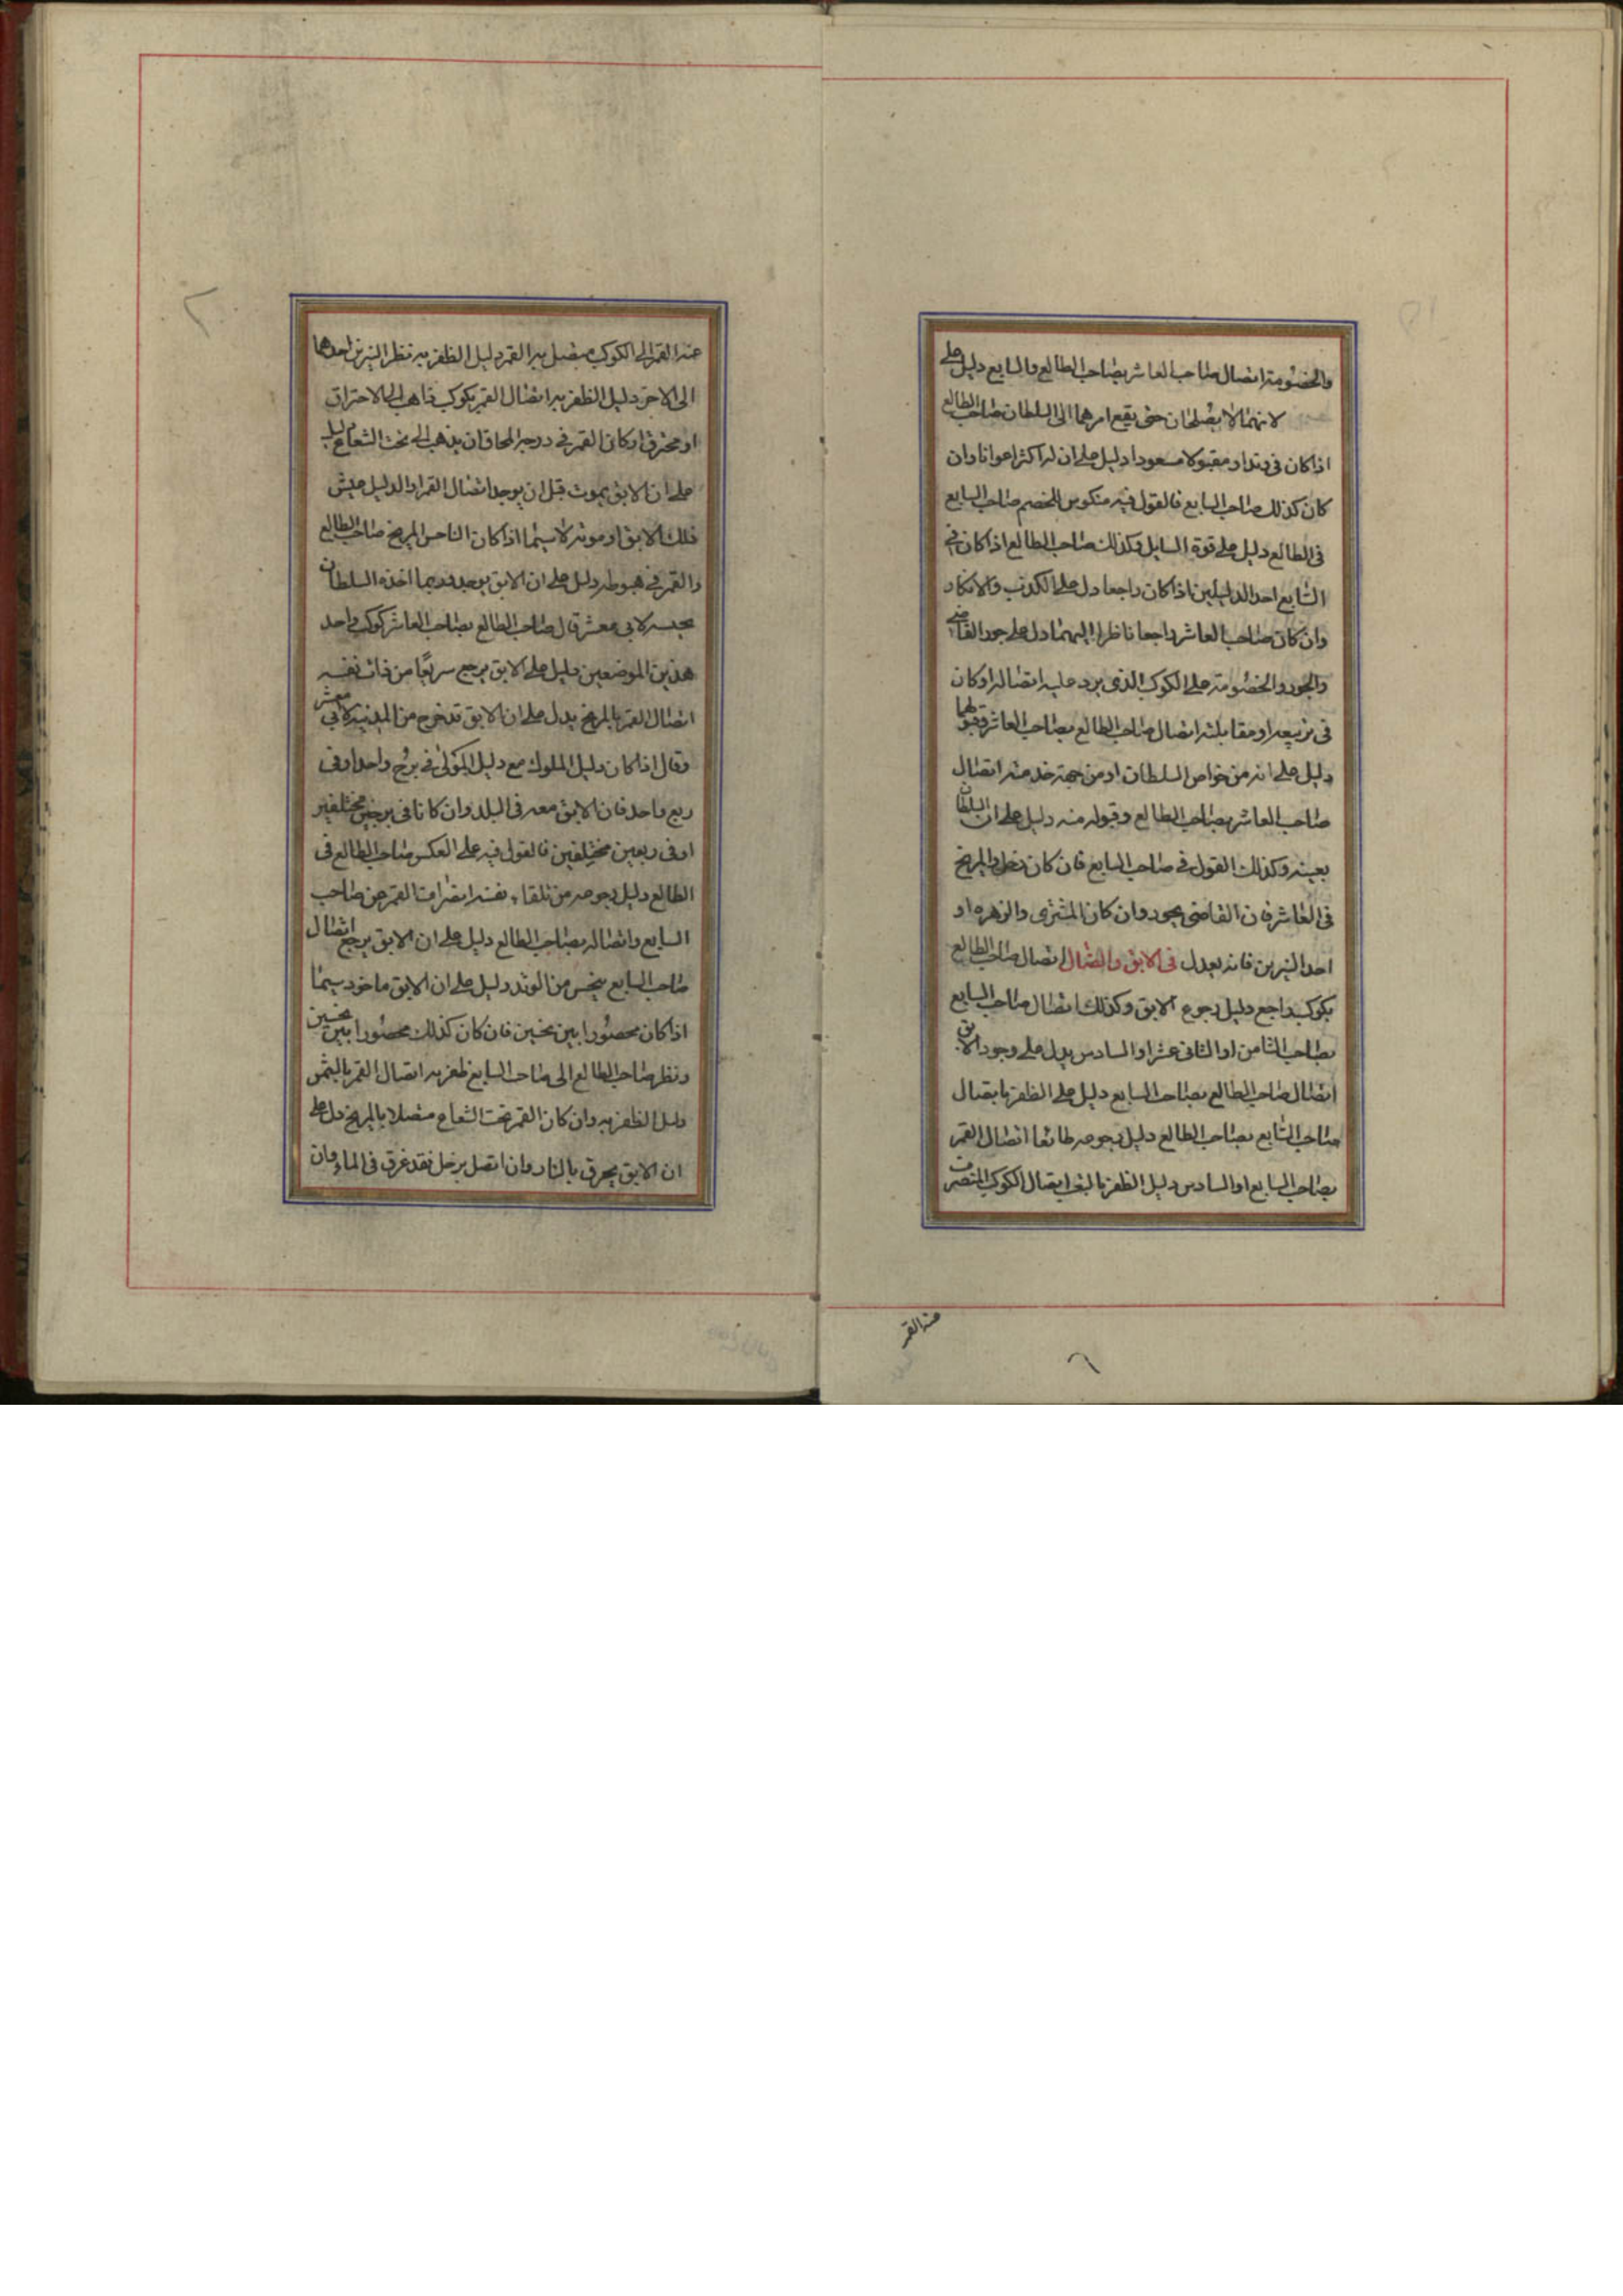 والخصومة اتصال صاحب العاشر بصاحب الطالع والسابع دليل على
لانهما لا يصلحان حتى يقع امرهما الى السلطان صاحب الطالع
اذا كان فى وتد او مقبولا مسعودا دليل على ان له اكثر اعوانا وان
كان كذلك صاحب السابع فالقول فيه منكوس الخصم صاحب السابع
فى الطالع دليل على قوة السايل وكذلك صاحب الطالع اذا كان فى
السابع احد الدليلين اذا كان راجعا دل على الكذب والانكار
وان كان صاحب العاشر راجعا ناظرا اليهما دل على جور القاضى
والجور والخصومة على الكوكب الذى يرد عليه اتصاله او كان
فى تربيعه او مقابلته اتصال صاحب الطالع بصاحب العاشر وقبولهما
دليل على انه من خواص السلطان او من جهة خدمته اتصال
صاحب العاشر بصاحب الطالع وقبوله منه دليل على ان السلطان
يعينه وكذلك القول فى صاحب السابع فان كان زحل والمريخ
فى العاشر فان القاضى يجور وان كان المشترى والزهره او
احد النيرين فانه يعدل فى الابق والضال اتصال صاحب الطالع
بكوكب راجع دليل رجوع الابق وكذلك اتصال صاحب السابع
بصاحب الثامن او الثانى عشر او السادس يدل على وجود الابق
اتصال صاحب الطالع بصاحب السابع دليل على الظفر بايصال
صاحب السابع بصاحب الطالع دليل رجوعه طائعا اتصال القمر
بصاحب السابع او السادس دليل الظفر اتصال الكوكب المنصرف
عنه القمر
عنه القمر الى الكوكب متصل به القمر دليل الظفر به نظر النيرين احدهما
الى الاخر دليل الظفر به اتصال القمر بكوكب ذاهب الى الاحتراق
او محترق او كان القمر فى درجة المحاق ان يذهب الى تحت الشعاع دليل
على ان الابق يموت قبل ان يوجد اتصال القمر او الدليل
ذلك الابق او موته لا سيما اذا كان الناحس المريخ صاحب الطالع
والقمر فى هبوطه دليل على ان الابق يوجد وربما اخذه السلطان
بحبسه لابى معشر قال صاحب الطالع بصاحب العاشر كوكب واحد
هذين الموضعين دليل على الابق يرجع سريعا من ذات نفسه
اتصال القمر بالمريخ يدل على ان الابق قد خرج من المدينة لابى معشر
وقال اذا كان دليل المملوك مع دليل المولى فى برج واحد او فى
ربع واحد فان الابق معه فى البلد وان كانا فى برجين مختلفين
او فى ربعين مختلفين فالقول فيه على العكس صاحب الطالع فى
الطالع دليل رجوعه من تلقاء نفسه انصراف القمر عن صاحب
السابع واتصاله بصاحب الطالع دليل على ان الابق يرجع اتصال
صاحب السابع بنحس من الوتد دليل على ان الابق ماخوذ سيما
اذا كان محصورا بين نحسين فان كان كذلك محصورا بين نحسين
ونظر صاحب الطالع الى صاحب السابع ظفر به اتصال القمر بالشمس
دليل الظفر به وان كان القمر تحت الشعاع متصلا بالمريخ دل على
ان الابق يحرق بالنار وان اتصل بزحل فقد غرق فى الماء وان